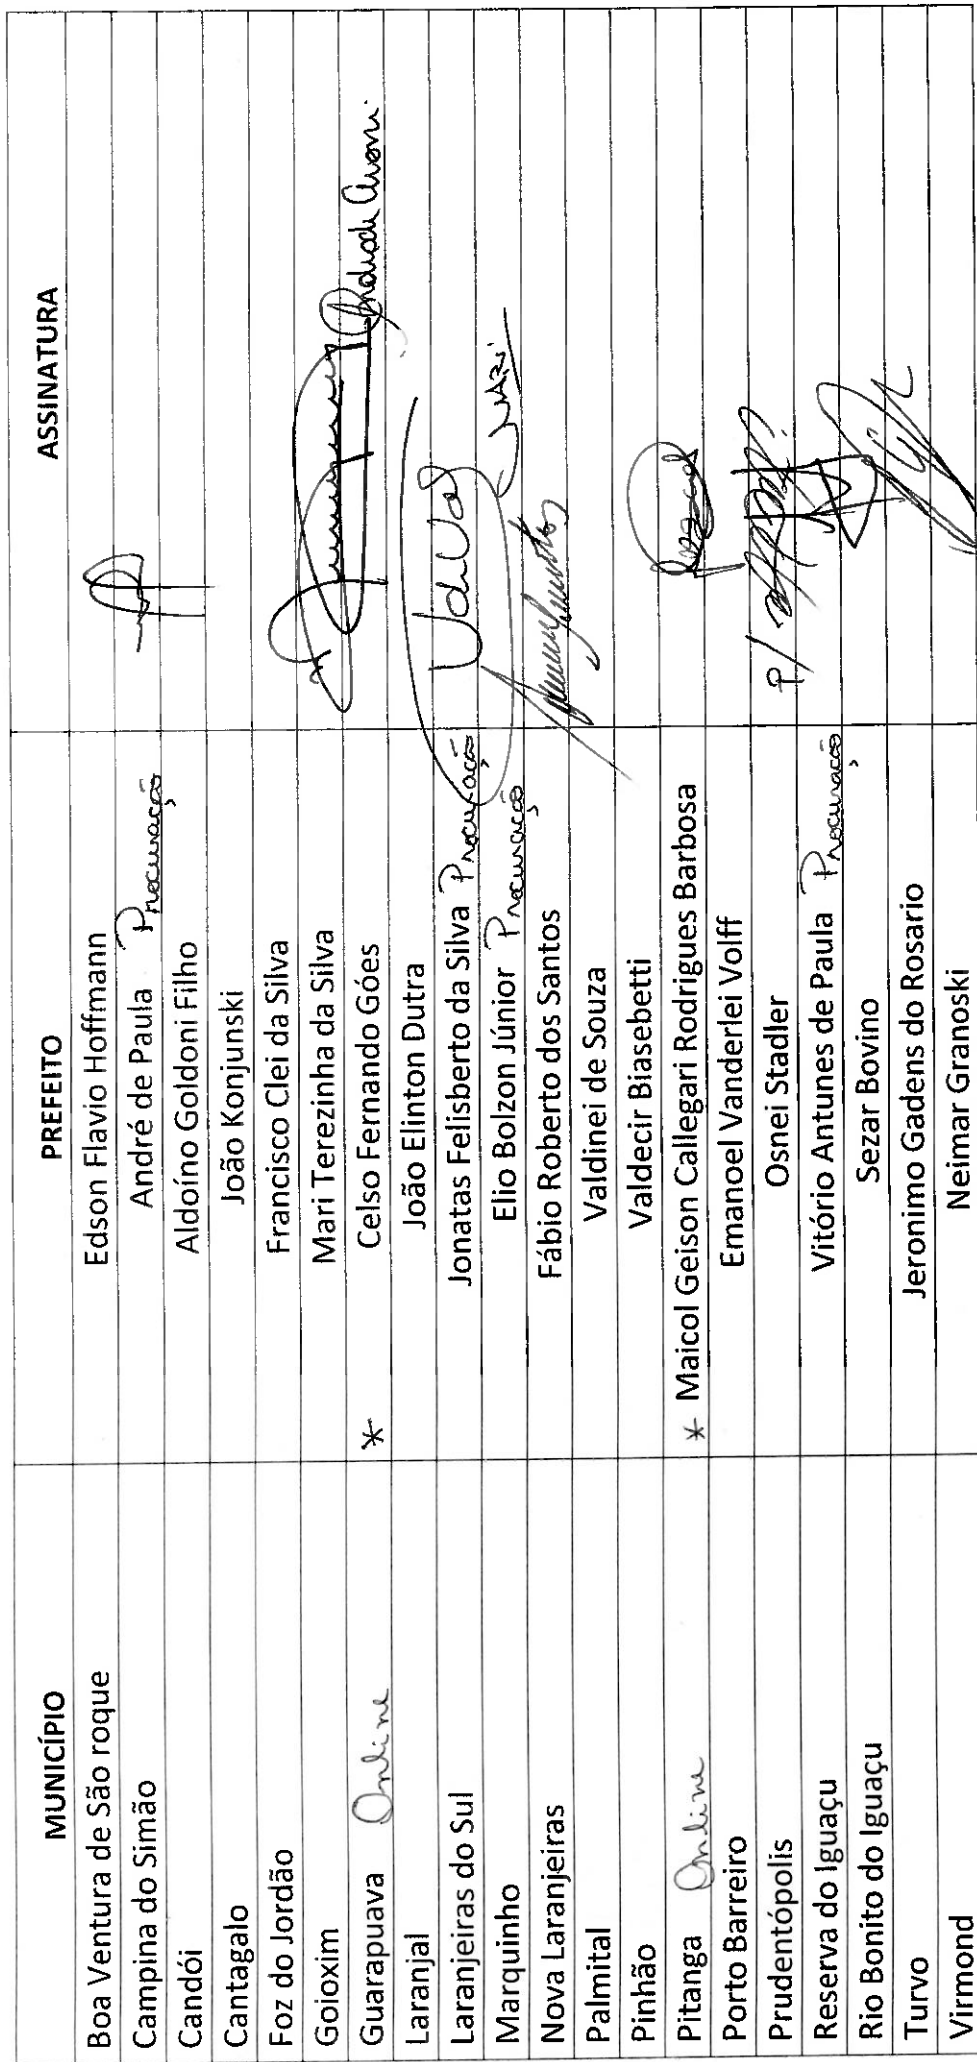 MUNICÍPIO PREFEITO ASSINATURA
Boa Ventura de São roque Edson Flavio Hoffmann
Campina do Simão André de Paula Procuração
Candói Aldoíno Goldoni Filho
Cantagalo João Konjunski
Foz do Jordão Francisco Clei da Silva
Goioxim Mari Terezinha da Silva
Guarapuava Online * Celso Fernando Góes
Laranjal João Elinton Dutra
Laranjeiras do Sul Jonatas Felisberto da Silva Procuração
Marquinho Elio Bolzon Júnior Procuração
Nova Laranjeiras Fábio Roberto dos Santos
Palmital Valdinei de Souza
Pinhão Valdecir Biasebetti
Pitanga Online * Maicol Geison Callegari Rodrigues Barbosa
Porto Barreiro Emanoel Vanderlei Volff
Prudentópolis Osnei Stadler P/
Reserva do Iguaçu Vitório Antunes de Paula Procuração
Rio Bonito do Iguaçu Sezar Bovino
Turvo Jeronimo Gadens do Rosario
Virmond Neimar Granoski